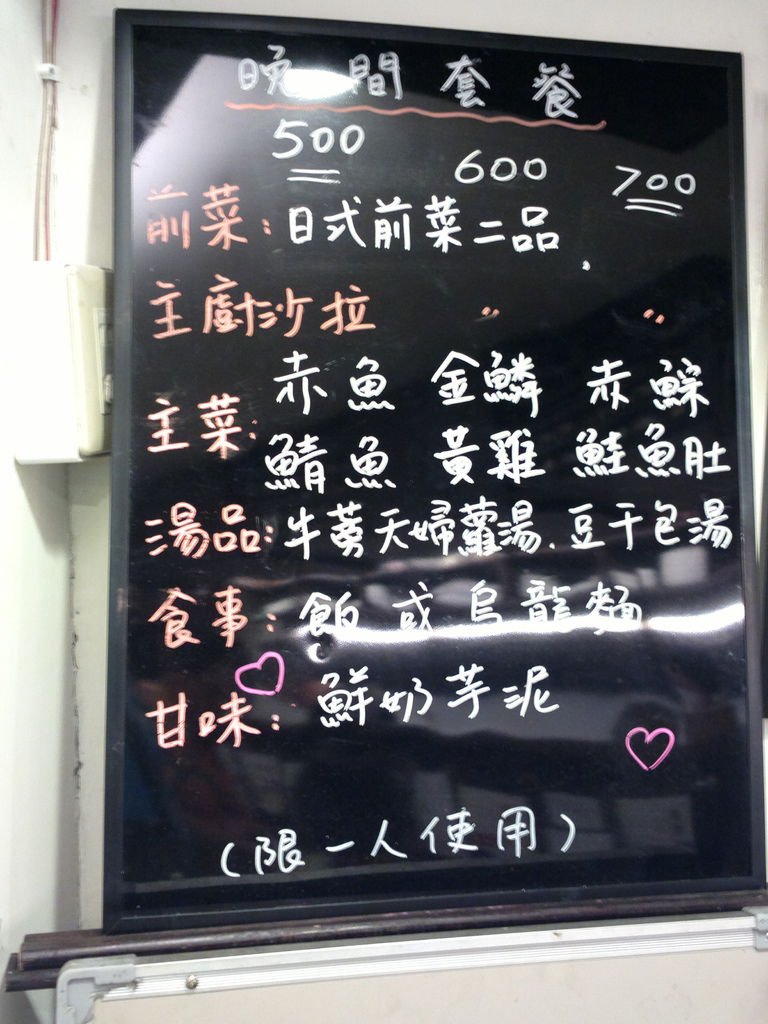 晚間套餐
500 600 700
前菜:日式前菜二品
主廚沙拉 〃 〃
主菜: 赤魚 金鱗 赤鯮
鯖魚 黃雞 鮭魚肚
湯品:牛蒡天婦蘿湯.豆干包湯
食事:飯或烏龍麵
甘味:鮮奶芋泥
(限一人使用)